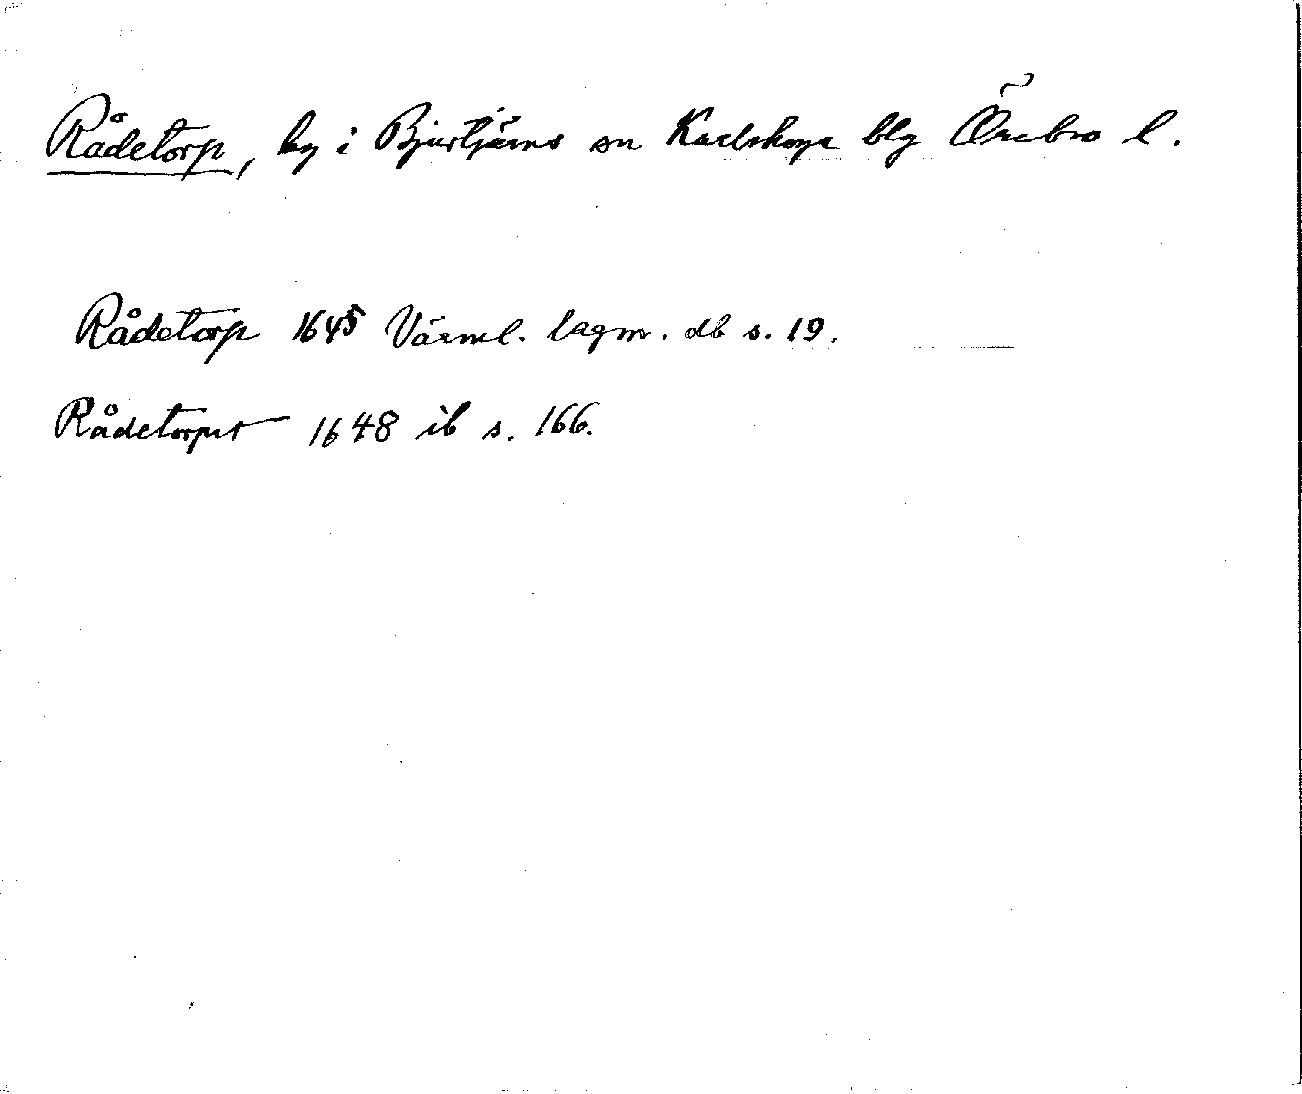 Rådetorp, by i Bjurtjärns sn Karlskoga blg Örebro l.
Rådetorp 1645 Värml. lagm. db s. 19.
Rådetorpet 1648 ib s. 166.